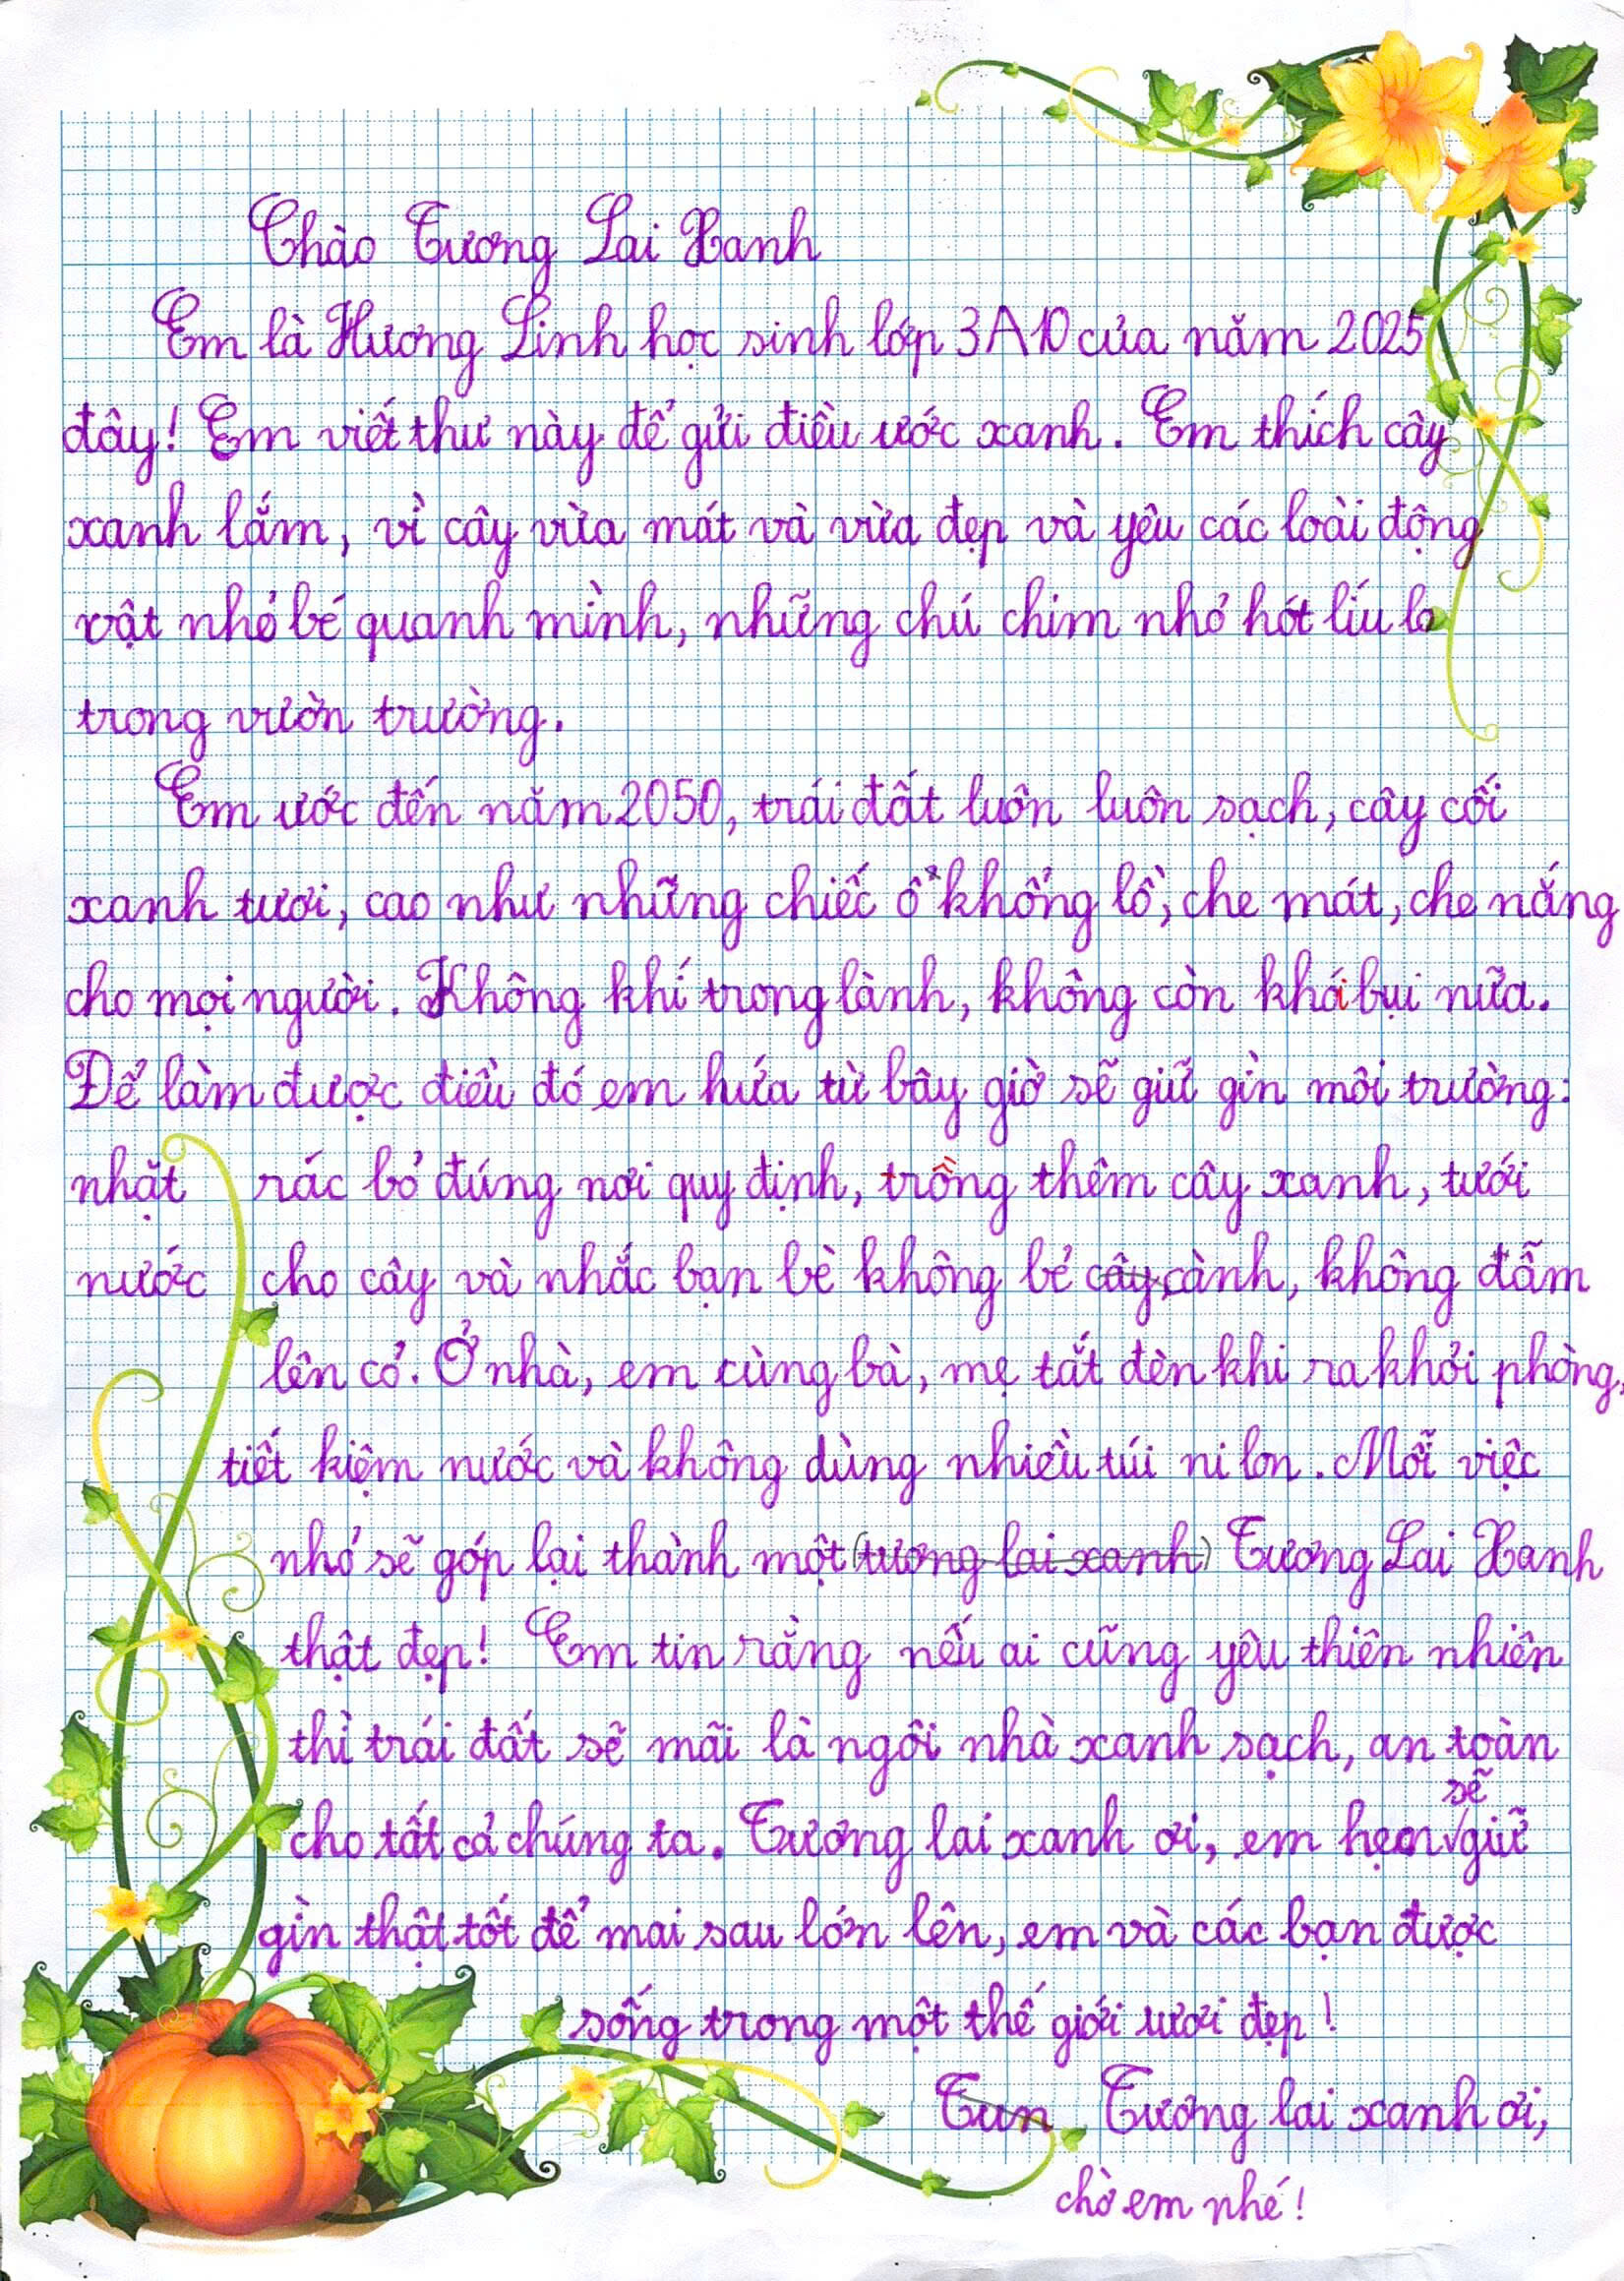 Chào Tương Lai Xanh
Em là Hương Linh học sinh lớp 3A10 của năm 2025
đây! Em viết thư này để gửi điều ước xanh. Em thích cây
xanh lắm, vì cây vừa mát và vừa đẹp và yêu các loài động
vật nhỏ bé quanh mình, những chú chim nhỏ hót líu lo
trong vườn trường.
Em ước đến năm 2050, trái đất luôn luôn sạch, cây cối
xanh tươi, cao như những chiếc ô khổng lồ, che mát, che nắng
cho mọi người. Không khí trong lành, không còn khói bụi nữa.
Để làm được điều đó em hứa từ bây giờ sẽ giữ gìn môi trường:
nhặt rác bỏ đúng nơi quy định, trồng thêm cây xanh, tưới
nước cho cây và nhắc bạn bè không bẻ cây cành, không dẫm
lên cỏ. Ở nhà, em cùng bà, mẹ tắt đèn khi ra khỏi phòng,
tiết kiệm nước và không dùng nhiều túi ni lon. Mỗi việc
nhỏ sẽ góp lại thành một (tương lai xanh) Tương Lai Xanh
thật đẹp! Em tin rằng nếu ai cũng yêu thiên nhiên
thì trái đất sẽ mãi là ngôi nhà xanh sạch, an toàn
cho tất cả chúng ta. Tương lai xanh ơi, em hẹn sẽ giữ
gìn thật tốt để mai sau lớn lên, em và các bạn được
sống trong một thế giới tươi đẹp!
Tun Tương lai xanh ơi,
chờ em nhé!